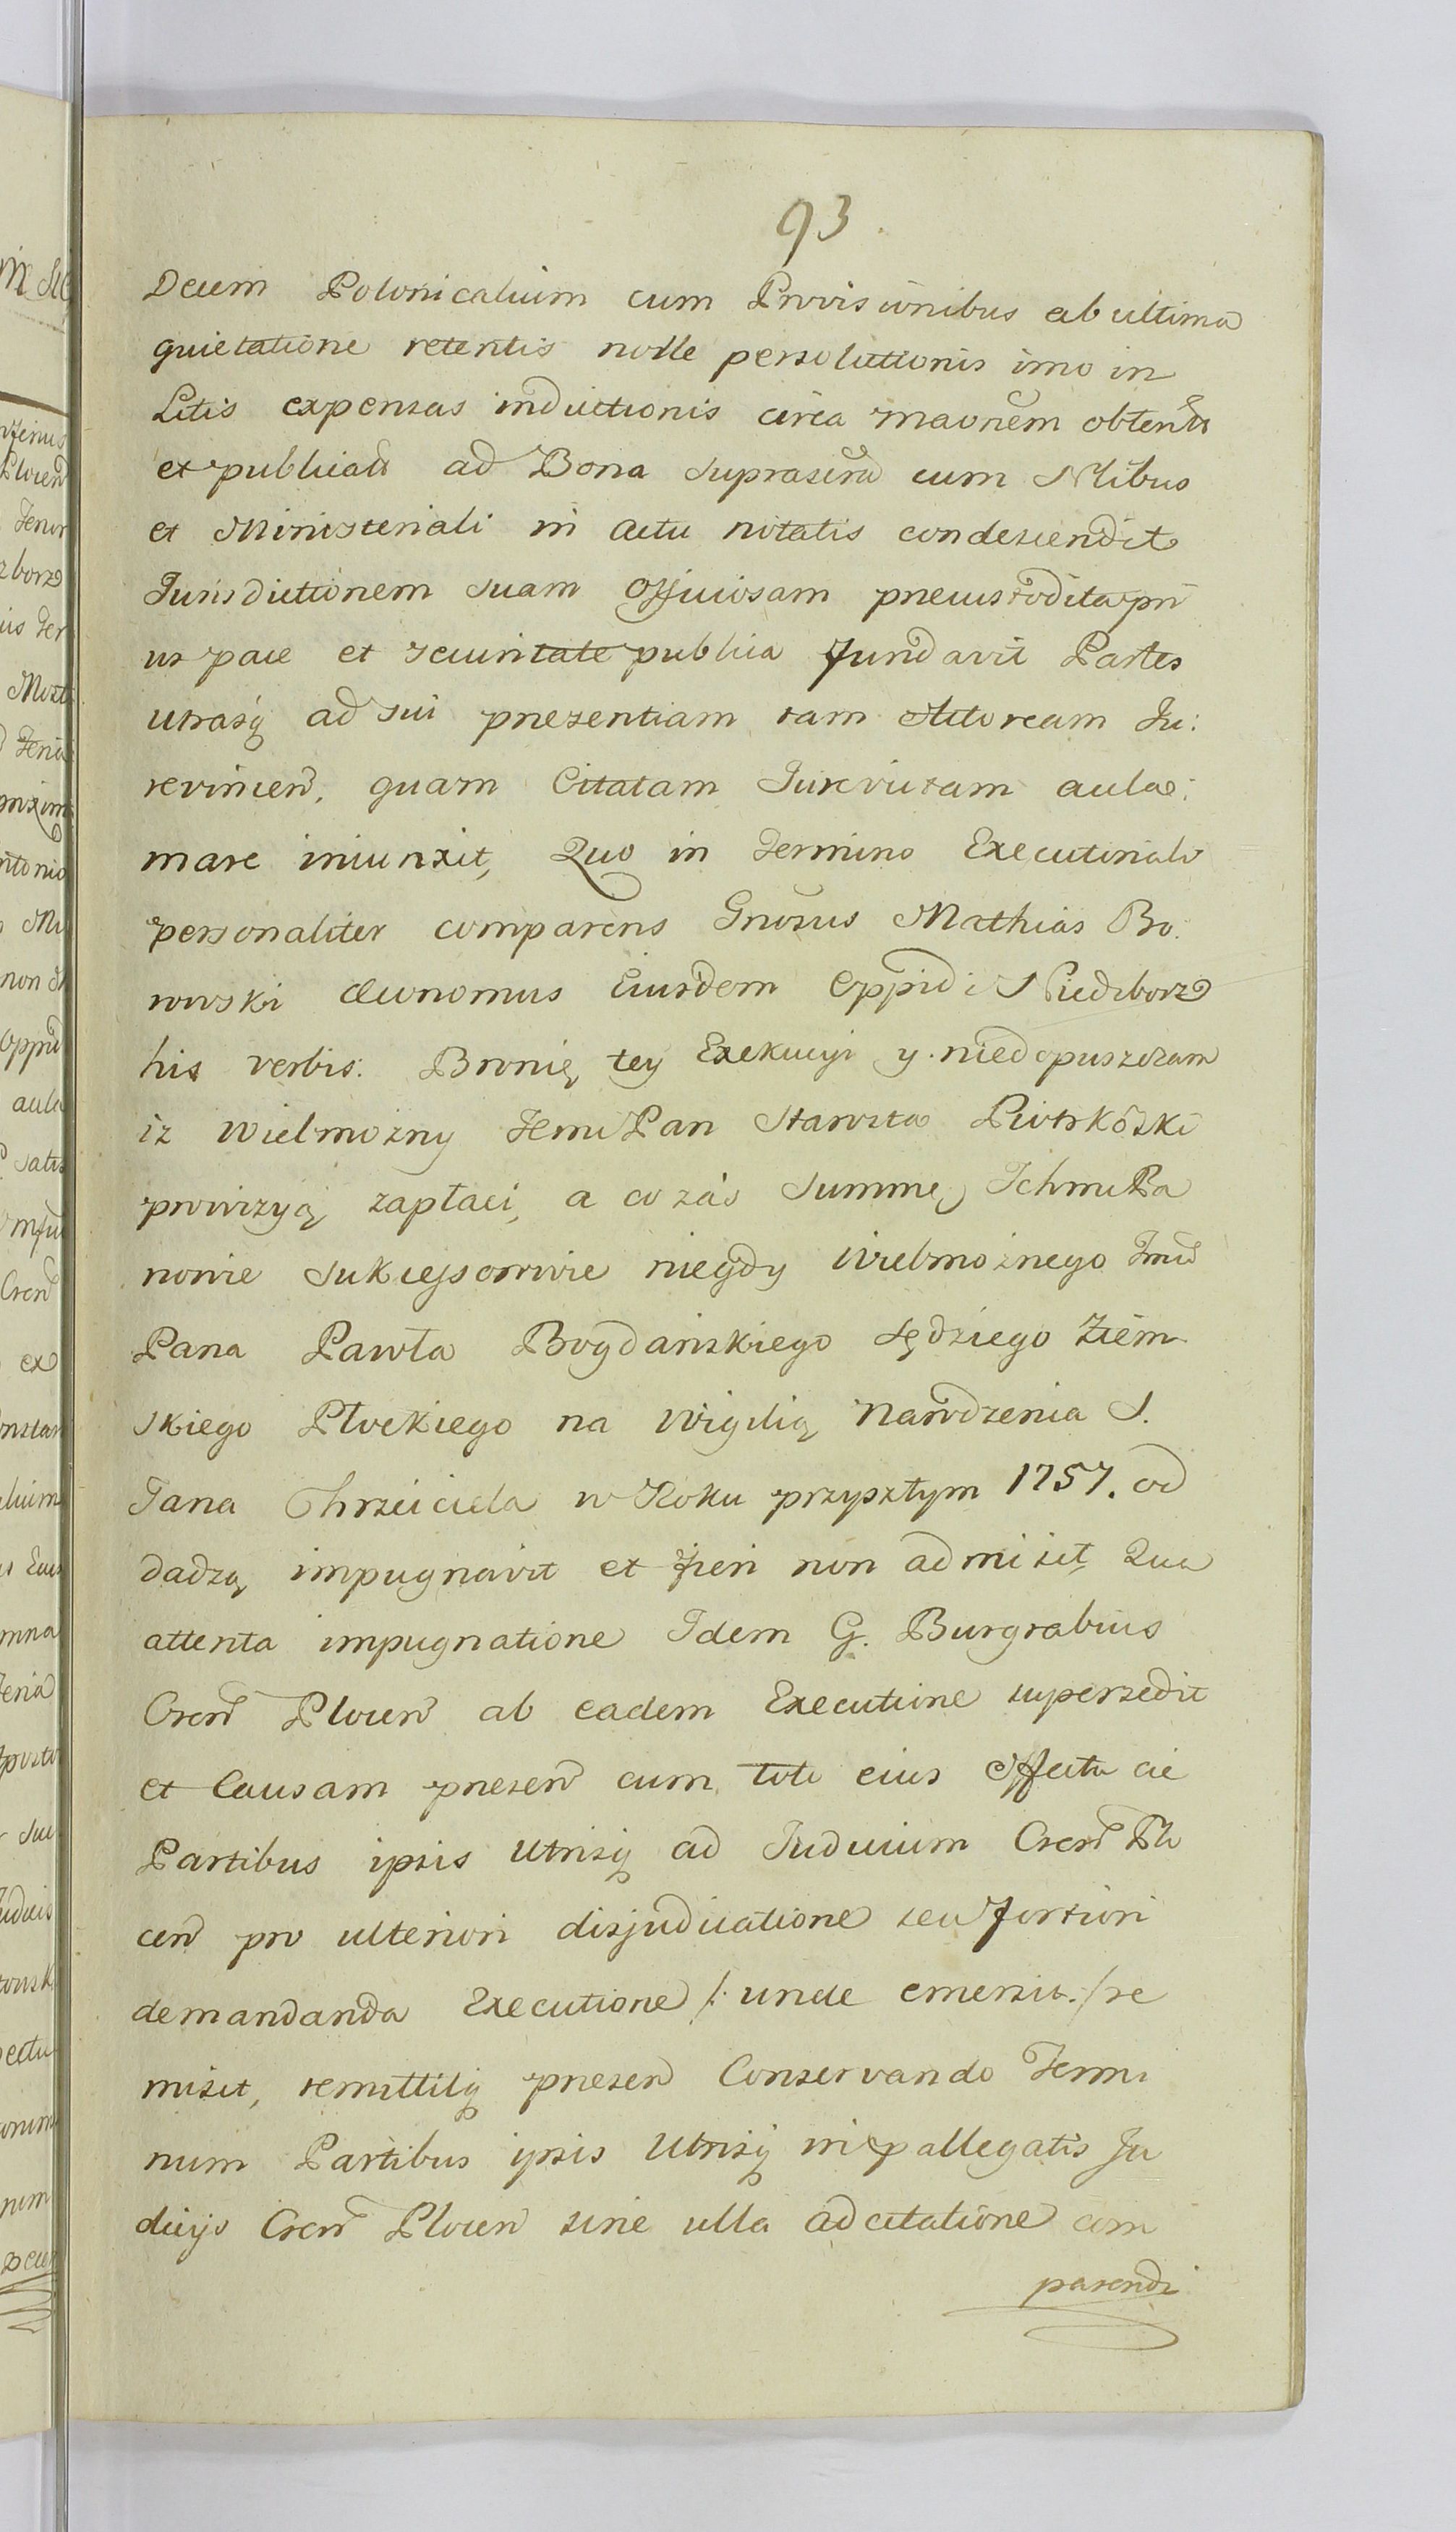 93.
Decem Polonicalium cum Provisionibus ab ultima
quietatione retentis nolle persolutionis imo in
Litis expensas inductionis circa maōnem obtent
et publicat ad Bona suprascrip cum Nlibus
et Ministeriali in actu notatis condescendit
Jurisdictionem suam Officiosam precustodita pri
us pace et securitate publica fundavit Partes
utrasq ad sui presentiam tam Actoream Ju:
revincen̄, quam Citatam Jurevictam accla:
mare iniunxit, Quo in Termino Executionali
personaliter comparens Gnosus Mathias Bo:
rowski Œconomus Eiusdem Oppidi Niedzborz
his verbis: Bronię tey Exekucyi y niedopuszczam
iz Wielmożny Jemć Pan Starosta Piotrkoski
prowizyą zapłaci, a co zás Summę Ichmć Pa
nowie Sukcessorowie niegdy Wielmożnego Jmć
Pana Pawła Bogdańskiego Sędziego Ziem
skiego Płockiego na Wigilią Narodzenia S.
Jana Chrzciciela w Roku przyszłym 1757. od
dadzą impugnavit et fieri non admisit, Qua
attenta impugnatione Idem G. Burgrabius
Cren̄ Plocen̄ ab eadem Executione supersedit
et Causam presen̄ cum toto eius effectu ac
Partibus ipsis utrisq ad Judicium Cren̄ Plo
cen̄ pro ulteriori disjudicatione seu fortiori
demandanda Executione /: unde emersit :/ re
misit, remittitq presen̄ Conservando Termi
num Partibus ipsis Utrisq in pallegatis Ju
dicijs Cren̄ Plocen̄ sine ulla adcitatione com
parendi